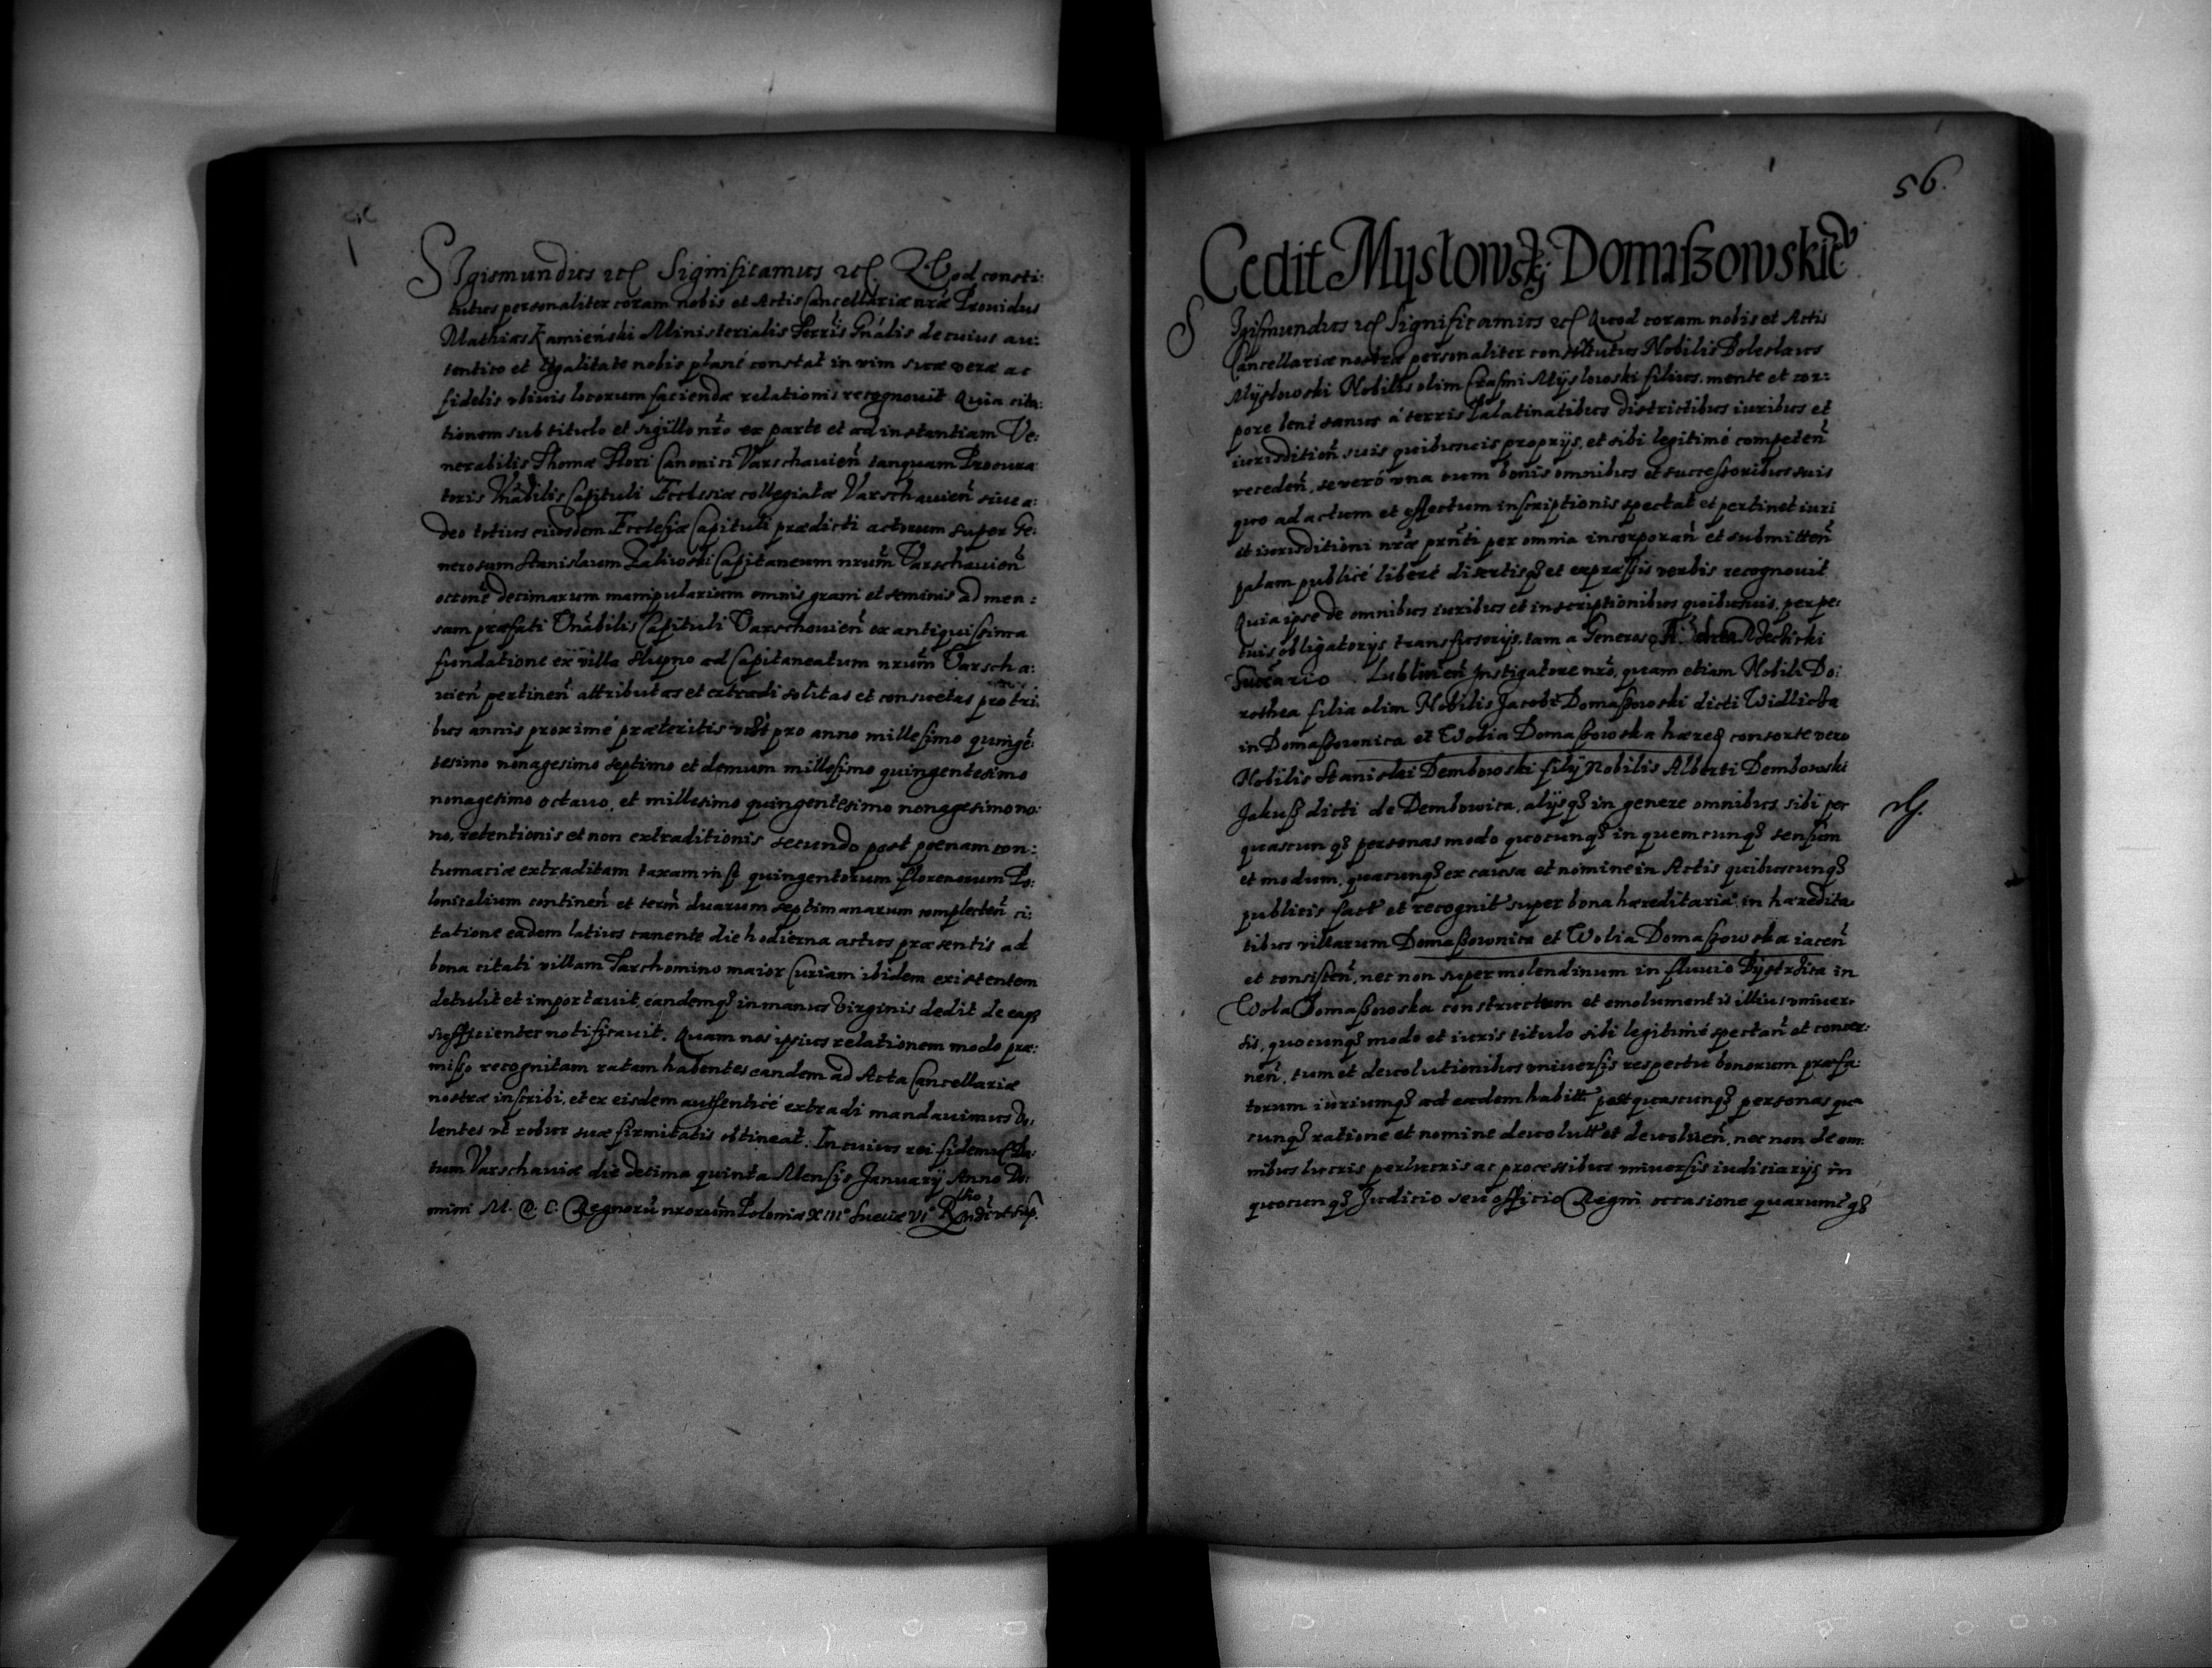 Sigismundus etc Significamus etc Quod consti:
tutus personaliter coram nobis et Actis Cancellariæ nr̃æ Prouidus
Mathias Kamieński Ministerialis Terrĩs Gnãlis de cuius au:
tentico et legalitate nobis planè constat in vim suæ veræ ac
fidelis vbiuis locorum faciendæ relationis recognouit Quia cita:
tionem sub titulo et sigillo nr̃o ex parte et ad instantiam Ve:
nerabilis Thomæ Flori Canonici Varschauien̄ tanquam Procura
toris Vnãbilis Capituli Ecclesiæ collegiatæ Varschauien̄ siue a:
deo totius eiusdem Ecclesiæ Capituli prædicti actorum super Ge:
nerosum Stanislaum Zaliwski Capitaneum nrum̃ Varschauien̄
occon̄e decimarum manipularium omnis grani et seminis ad men:
sam præfati Vnãbilis Capituli Varschouien̄ ex antiquissima
fundatione ex villa Slupno ad Capitaneatum nrum̃ Varscha:
uien̄ pertinen̄ attributas et extradi solitas et consuetas pro tri:
bus annis proximè præteritis vt pro anno millesimo quingẽ:
tesimo nonagesimo septimo et demum millesimo quingentesimo
nonagesimo octauo, et millesimo quingentesimo nonagesimo no:
no, retentionis et non extraditionis secundo post poenam con:
tumaciæ extraditam taxam in se quingentorum florenorum Po:
lonicalium continen̄ et term̃ duarum septimanarum complecten̄ ci:
tatione eadem latius canente die hodierna actus præsentis ad
bona citati villam Tarchomino maior Curiam ibidem existentem
detulit et importauit, eandemq₃ in manus Virginis dedit de eaq₃
sufficienter notificauit. Quam nos ipsius relationem modo præ:
misso recognitam ratam habentes eandem ad Acta Cancellariæ
nostræ inscribi, et ex eisdem authenticè extradi mandauimus Vo:
lentes vt robur suæ firmitatis obtineat. In cuius rei fidem etc Da:
tum Varschauiæ die decima quinta Mensis January Anno Do:
mini M. D. C. Regnorũ nrorũm Poloniæ XIII° Sueciæ VI° Rel͠tio ut sup.
56.
Cedit Mysłowsky Domaszowskiey
Sigismundus etc Significamus etc Quod coram nobis et Actis
Cancellariæ nostræ personaliter constitutus Nobilis Boleslaus
Mÿsłowski Nobilis olim Erasmi Mÿslowski filius, mente et cor:
pore bene sanus à terris Palatinatibus districtibus iuribus et
iurisdition̄ suis quibusuis proprijs, et sibi legitimè competen̄
receden̄, se verò vna cum bonis omnibus et successoribus suis
quo ad actum et effectum inscriptionis spectat et pertinet iuri
et iurisditioni nr̃æ prnt̃i per omnia incorporan̄ et submitten̄
palam publicè liberè disertisq₃ et expressis verbis recognouit
Quia ipse de omnibus iuribus et inscriptionibus quibusuis, perpe:
tuis obligatorijs transfusorijs, tam a Generoso
Succ̃ario Lublinen̄ Instigatore nr̃o, quam etiam Nobili Do:
rothea filia olim Nobilis Jacobi Domaszowski dicti Widlicka
in Domaszownica et Wolia Domaszowska hæred₃ consorte vero
Nobilis Stanislai Dembowski filij Nobilis Alberti Dembowski
Jakusz dicti de Dembowica, alijsq₃ in genere omnibus, sibi per
quascunq₃ personas modo quocunq₃ in quemcunq₃ sensum
et modum, quacunq₃ ex causa et nomine in Actis quibuscunq₃
publicis fact̃ et recognit̃ super bona hæreditaria, in hæredita:
tibus villarum Domaszownica et Wolia Domaszowska iacen̄
et consisten̄, nec non super molendinum in fluuio Bÿstrzica in
Wola Domaszowska constructum et emolumentis illius vniuer:
sis, quocunq₃ modo et iuris titulo sibi legitimè spectan̄ et concer:
nen̄, tum et deuolutionibus vniuersis respectu bonorum præfa:
torum iuriumq₃ ad eadem habitt̃ post quascunq₃ personas qua
cunq₃ ratione et nomine deuolutt̃ et deuoluen̄, nec non de om:
nibus lucris perlucris ac processibus vniuersis iudiciarijs in
quocunq₃ Judicio seu officio Regni occasione quarumc̃q₃